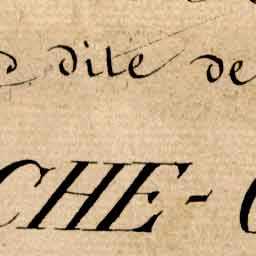 dite de
CHE-